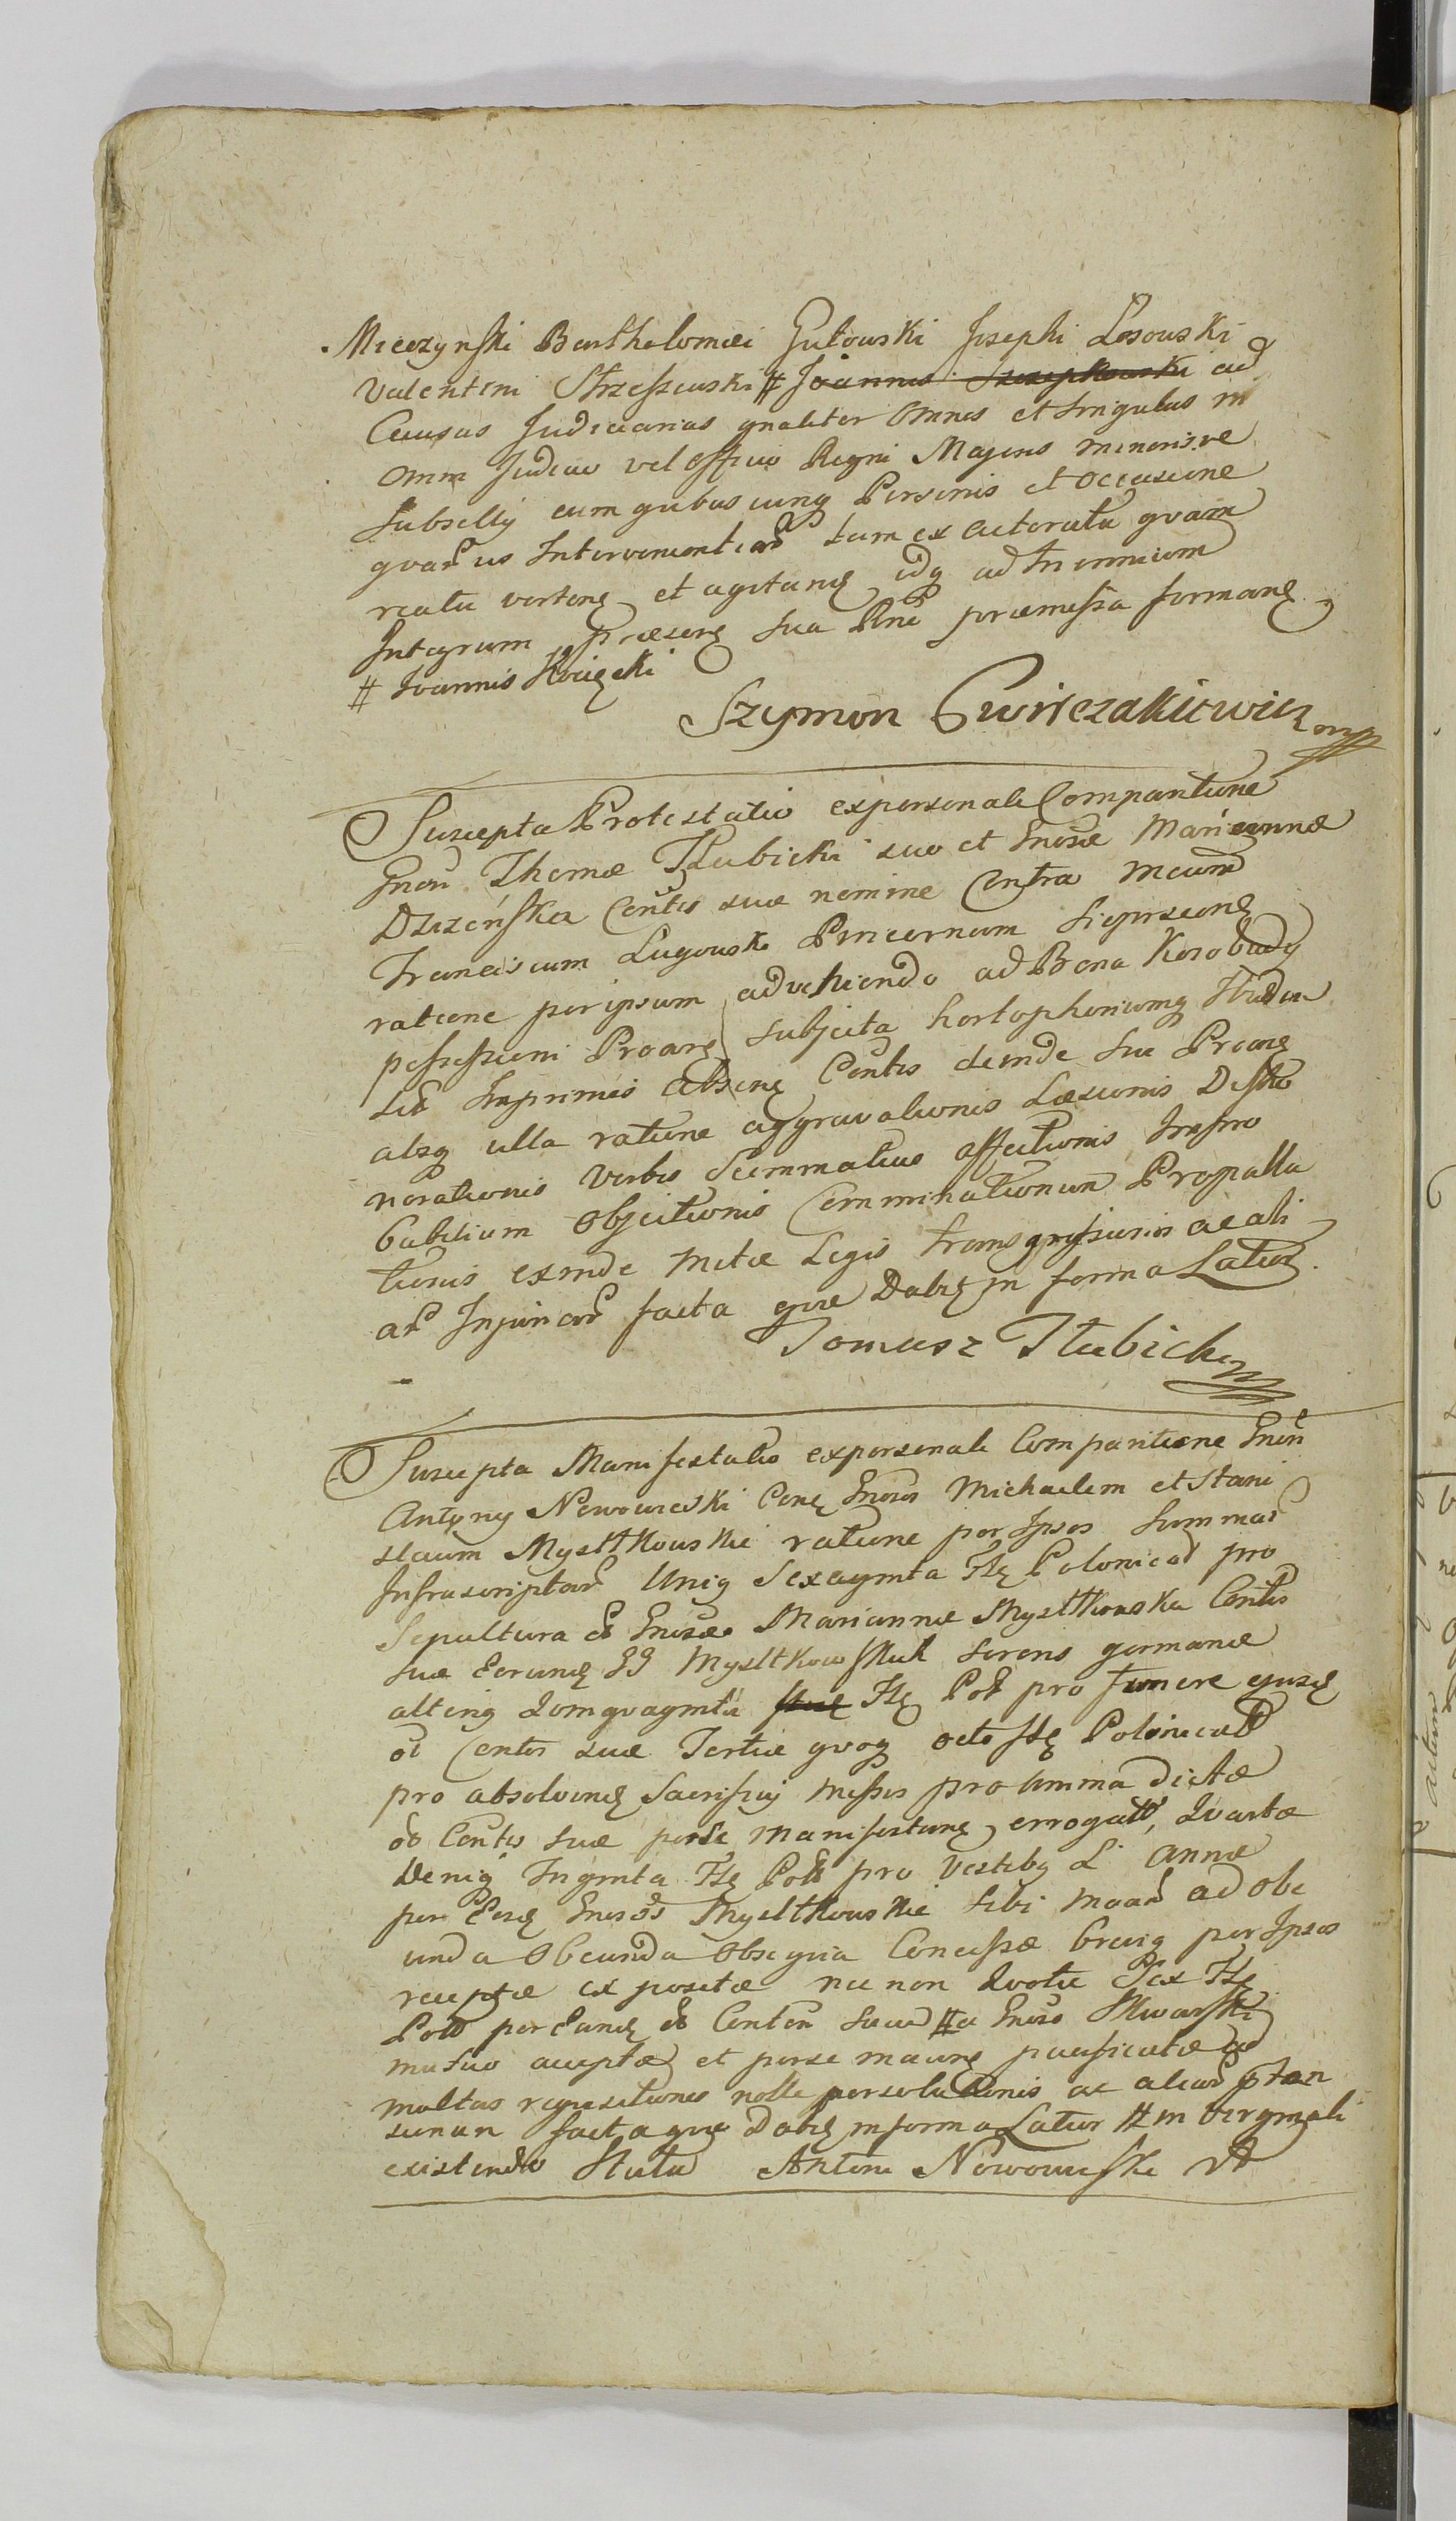 Mieczynski Bartholomæi Gutowski Josephi Losowski
Valentini Strzeszewski # Joannis Szczepkowski ad
Causas Judiciarias gnaliter Omnes et singulas in
Omni Judicio vel Officio Regni Majoris minorisve
Subsellij cum quibuscunq Personis et Occasione
quar͂ us Intervenientiar͂ tam ex actoratu qvam
reatu verten et agitan idq ad Triennium
Integrum præsen sua Rne præmissa forman
# Joannis Kocięcki
Szymon Cwiklczakiewicz mpp
Suscepta Protestatio ex personali Comparitione
Gnon Thomæ Tłubicki suo et Gnosæ Mariannæ
Dzizeńska Contis suæ nomine Contra Mcum
Franciscum Lugowski Pincernam
ratione per ipsum advehiendo ad Bona Korobudy
possessioni Proan subjecta hortophoniumq Ibidem
sed Imprimis absen Contis deinde sui Proan
absq ulla ratione aggravationis Læsionis Desho
norationis Verbis Scommaticis affectionis Impro
babilium Objectionis Comminationum Propalla
tionis exinde metæ Legis transgressionis ac ali
ar͂ Injuriar͂ facta qvæ Dabit in forma Latior.
Tomasz Tłubicki mpp
Suscepta Manifestatio ex personali Comparitione Gnon
Antony Nowowieski Con Gnosos Michaelem et Stani
slaum Mystkowskie ratione per Ipsos Summar͂
Infrascriptar͂ Uniq Sexaginta Fl Polonical pro
Sepultura ol Gnosæ Mariannæ Mystkowska Contis
suæ Eorund GG Mystkowskich sororis germanæ
alteriq Qvinqvaginta Fl Pol pro funere ejusd
ol Contis suæ Tertiæ qvoq octo fl Polonicall
pro absolven Sacrificij Missis pro anima dictæ
ol Contis suæ per se manifestan errogatt, Qvartæ
Deniq Triginta Fl Poll pro Vestibq L Annæ
per Eosd Gnosos Mystkowskie sibi ad obe
unda Obeunda Obseqvia Concessæ per Ipsos
receptæ ex positæ nec non Qvotæ Sex Fl
Poll per Eand ol Contem suam # a Gnoso Skwarski
mutuo acceptæ et per se pacificatæ ad
multas reqvisitiones nolle persolutionis ac aliar͂ ptten
sionum facta qvæ Dabit in forma Latior # in virginali
existendo Statu Antoni Nowowieski